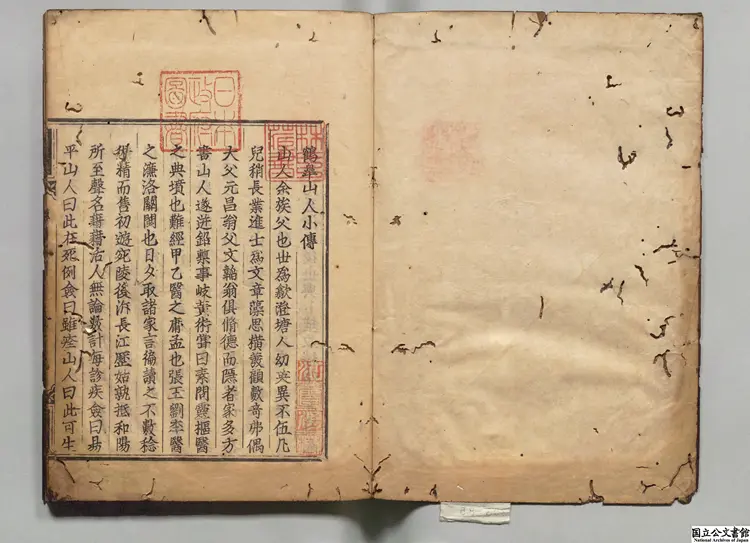 鶴皐山人小傳
山人余族父也世爲歙澄塘人幼英異不伍凡
兒稍長業進士爲文章藻思橫發顧數奇弗偶
大父元昌翁父文韜翁俱脩德而隱者家多方
書山人遂迸鉛槧事岐黃術嘗曰素問靈樞醫
之典墳也難經甲乙醫之庸孟也張王劉李醫
之濂洛關閩也日夕取諸家言徧讀之不數稔
術精而售初遊宛陵後泝長江歷姑孰抵和陽
所至聲名籍籍活人無論數計每診疾僉曰易
平山人曰此在死例僉曰難痊山人曰此可生
日本
政府
圖書
国立公文書館
National Archives of Japan